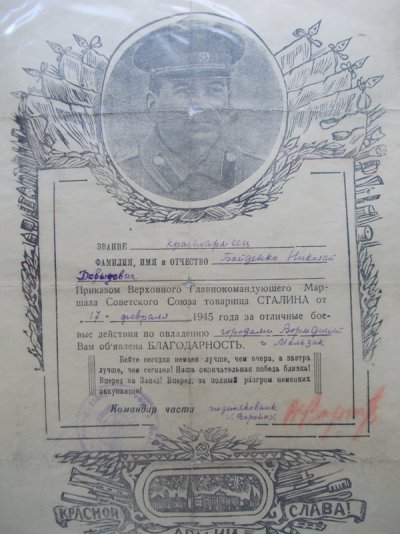 ЗВАНИЕ красноармеец
ФАМИЛИЯ, ИМЯ и ОТЧЕСТВО Байденко Николай
Давыдович
Приказом Верховного Главнокомандующего Мар-
шала Советского Союза товарища СТАЛИНА от
17 февраля 1945 года за отличные бое-
вые действия по овладению городами Вормдитт
Вам объявлена БЛАГОДАРНОСТЬ. и Мельзак
Бейте сегодня немцев лучше, чем вчера, а завтра
лучше, чем сегодня! Наша окончательная победа близка!
Вперед на Запад! Вперед, за полный разгром немецких
оккупантов!
Командир части подполковник
Воронов
КРАСНОЙ АРМИИ СЛАВА!